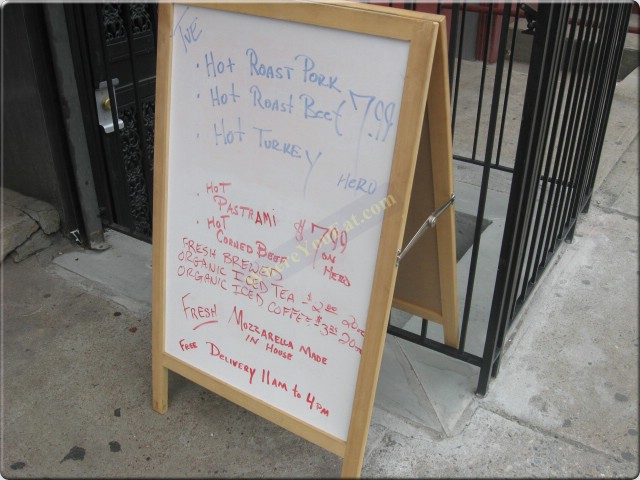 Tue
• Hot Roast Pork
• Hot Roast Beef 7.99
• Hot Turkey
Hero
• Hot
Pastrami
• Hot
Corned Beef
$7.99
on
Hero
Fresh Brewed
Organic Iced Tea - $2.00 20oz
Organic Iced Coffee - $3.00 20oz
Fresh Mozzarella Made
in House
Free Delivery 11am to 4pm